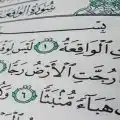 سُورَةُ الوَاقِعَ
بِسْ
تِ الْوَاقِعَةُ ١ لَيْسَ لِوَ
رُجَّتِ الْأَرْضُ رَجًّا
هَبَاءً مُّنۢبَثًّا ٦